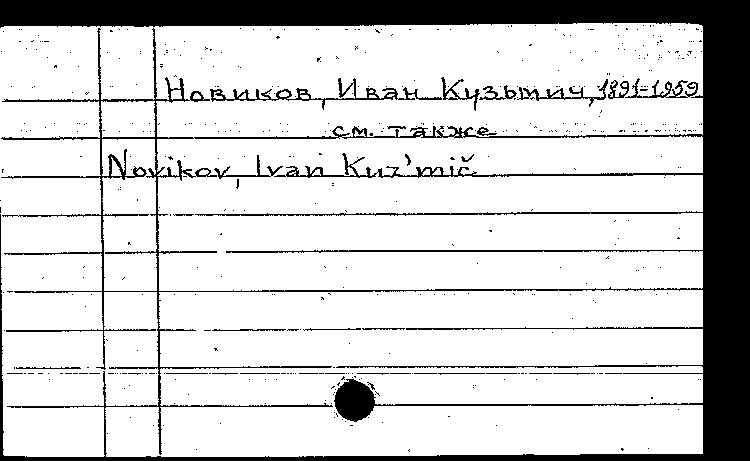 Новиков, Иван Кузьмич, 1891-1959
см. также
Novikov, Ivan Kuz'mič